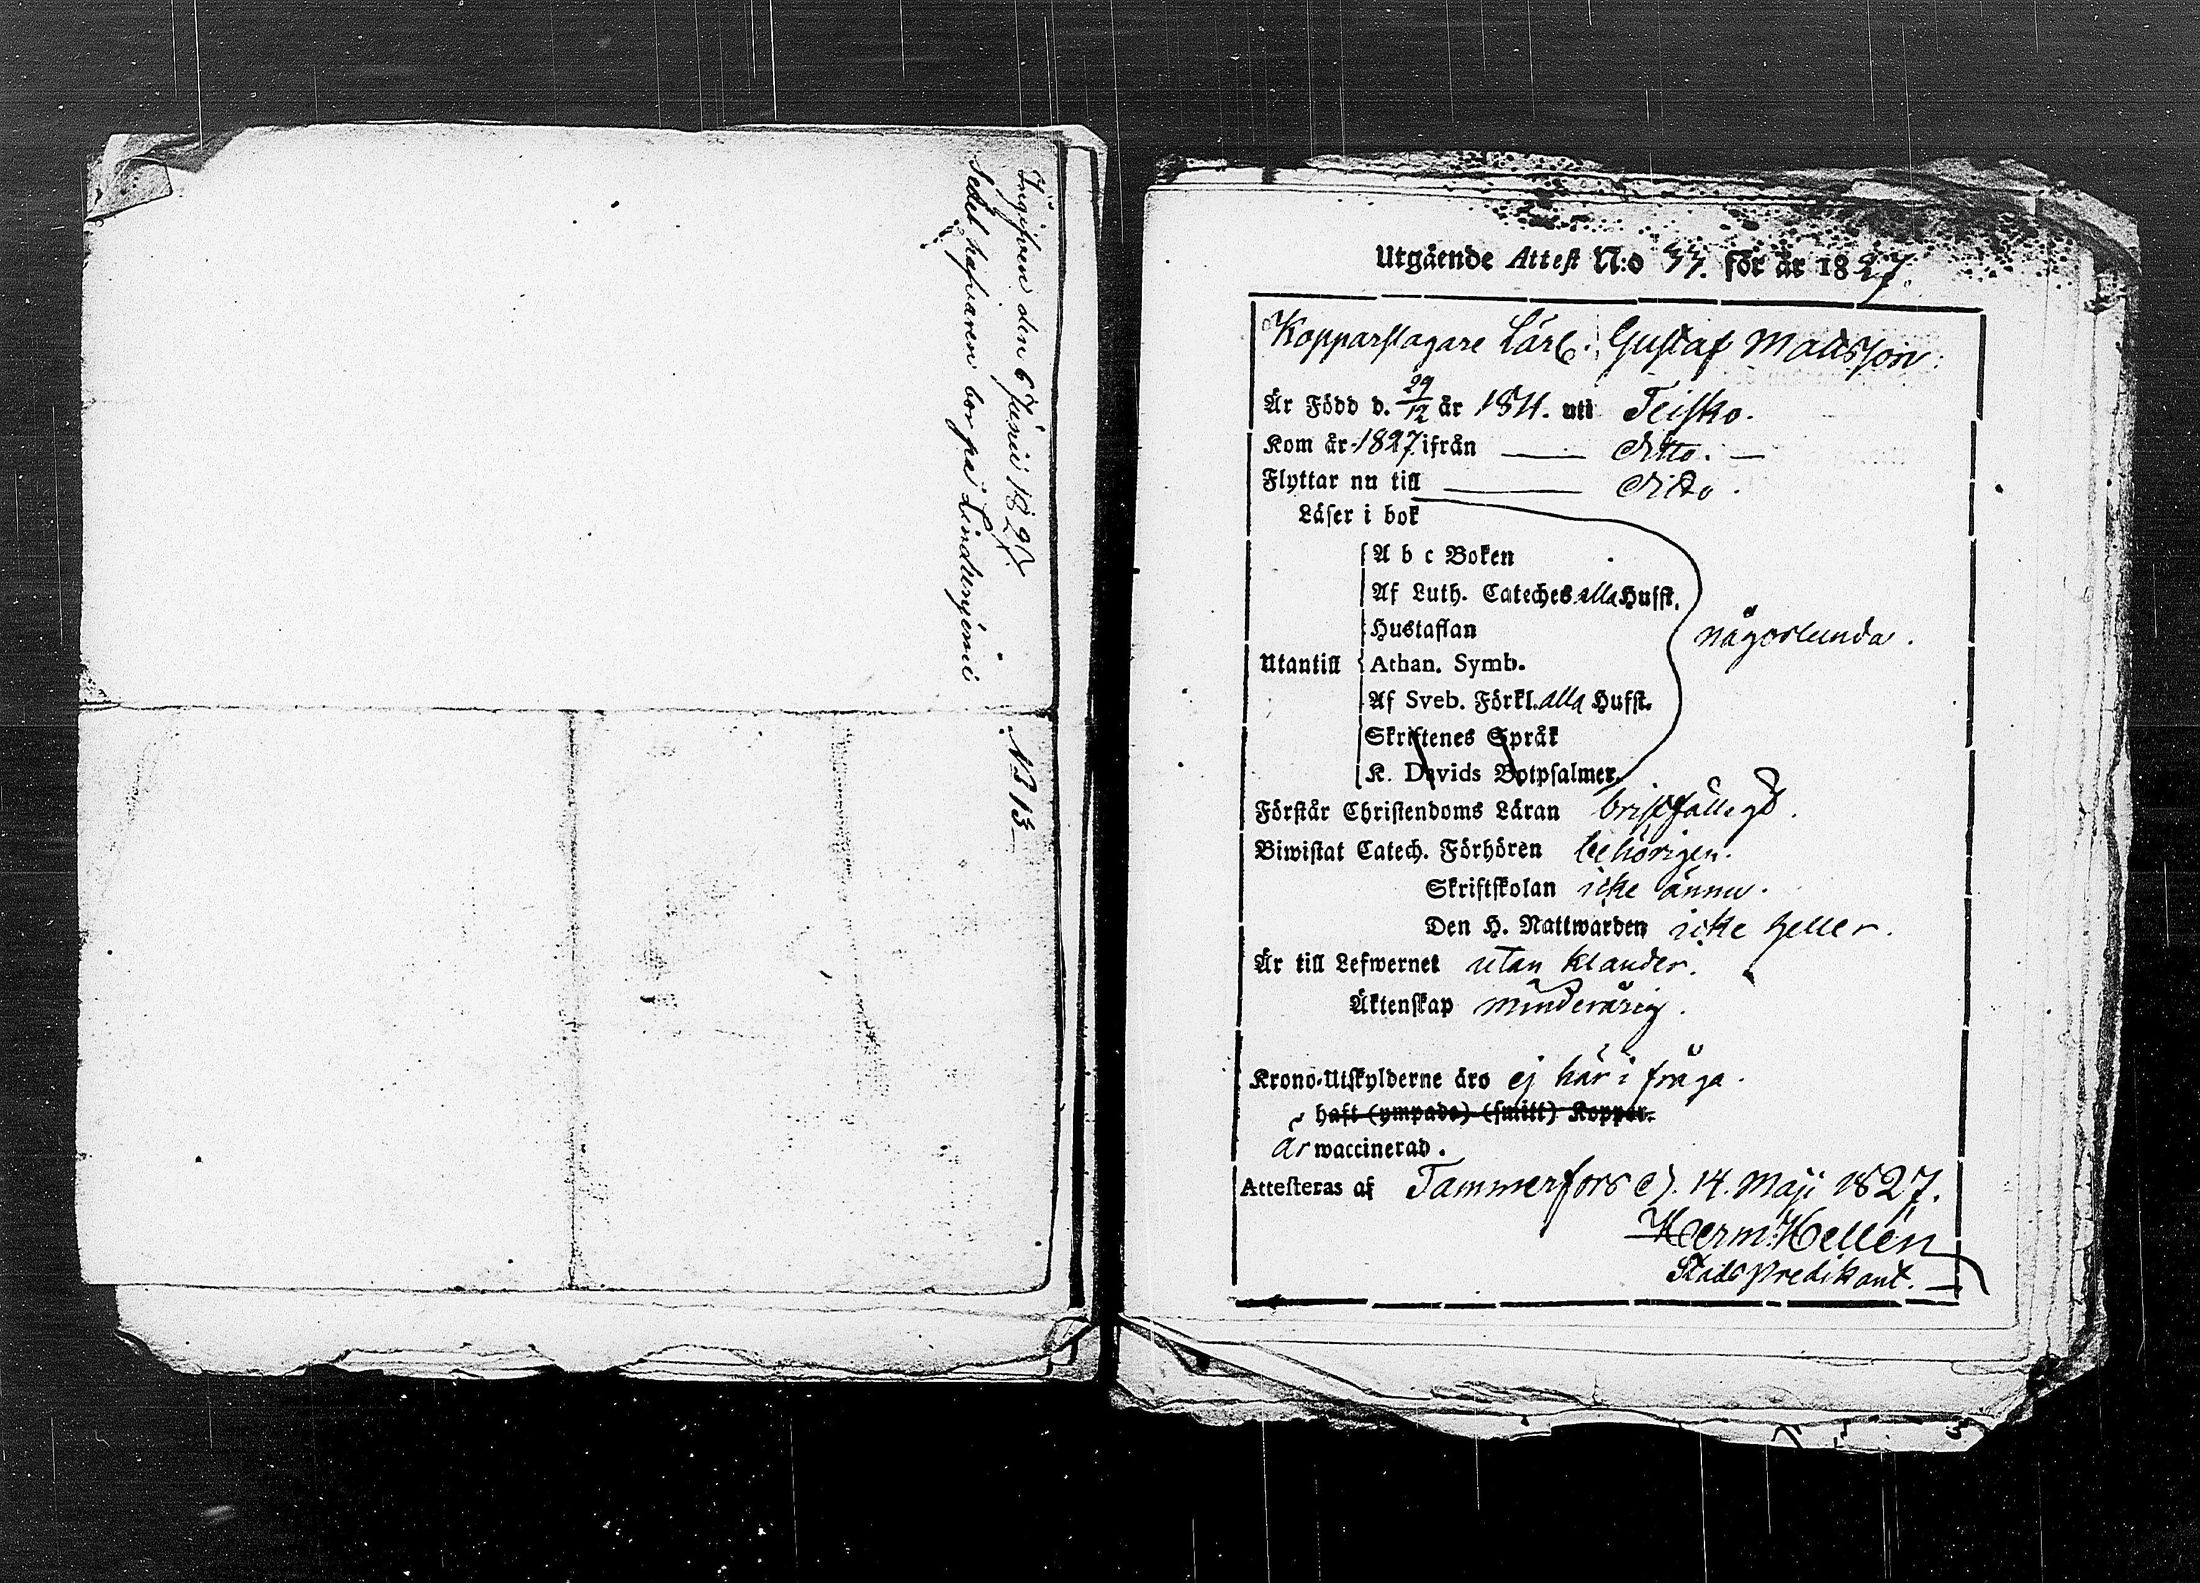 Ingifven den 6 Junii 1827.
Sedel hafvaren bor på Lindun
N:o 13
Utgående Attest N:o 33. för år 1827.
Kopparslagare Lärl. Gustaf Mattsson.
Är Född d. 29/12 år 1811. uti Teisko.
Kom år 1827 ifrån —— ditto. —
Flyttar nu till —— ditto.
Läser i bok
A b c Boken
Af Luth. Cateches alla Hufst.
Hustaflan
någorlunda.
Utantill Athan. Symb.
Af Sveb. Förkl. alla Hufst.
Skriftenes Språk
K. Davids Botpsalmer.
Förstår Christendoms Läran bristfälligt.
Biwistat Catech. Förhören behörigen.
Skriftskolan icke ännu.
Den H. Nattwarden icke heller.
Är till Lefwernet utan klander.
Äktenskap minderårig.
Krono-Utskylderne äro ej här i fråga.
haft (ympade) (smitt) Koppor.
är waccinerad.
Attesteras af Tammerfors d. 14. Maji 1827.
Herm: Hellén
Stads Predikant.